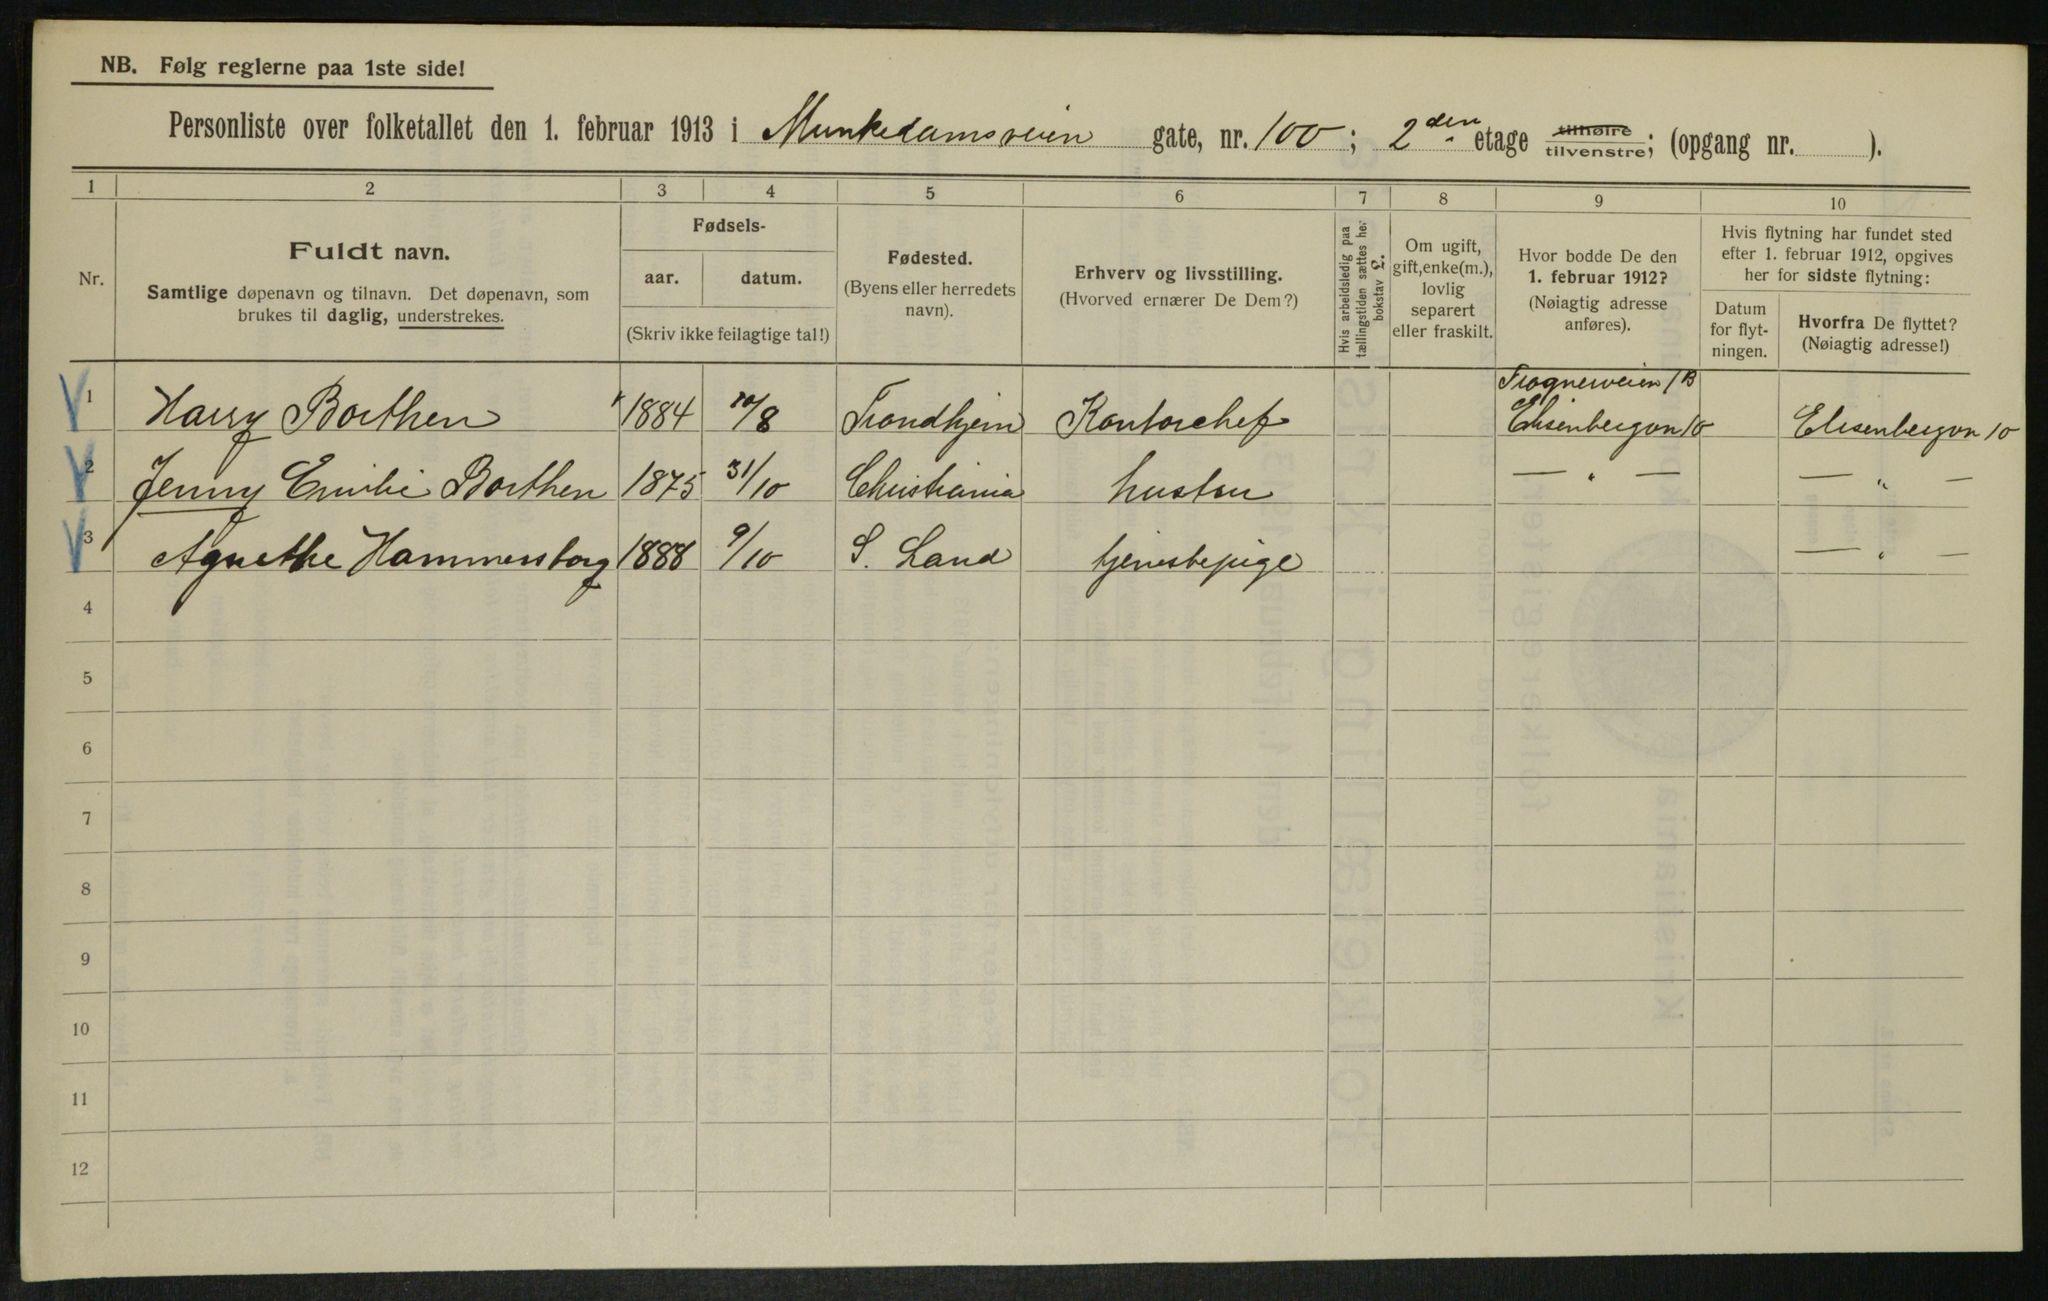 NB. Følg reglerne paa 1ste side!
Personliste over folketallet den 1. februar 1913 i Munkedamsveien gate, nr. 100; 2den etage tilhøire tilvenstre; (opgang nr. ).
1 2 3 4 5 6 7 8 9 10
Nr.
Fuldt navn.
Samtlige døpenavn og tilnavn. Det døpenavn, som
brukes til daglig, understrekes.
Fødsels-
aar. datum.
(Skriv ikke feilagtige tal!)
Fødested.
(Byens eller herredets
navn).
Erhverv og livsstilling.
(Hvorved ernærer De Dem?)
Hvis arbeidsledig paa
tællingstiden sættes her
bokstav L.
Om ugift,
gift, enke(m.),
lovlig
separert
eller fraskilt.
Hvor bodde De den
1. februar 1912?
(Nøiagtig adresse
anføres).
Hvis flytning har fundet sted
efter 1. februar 1912, opgives
her for sidste flytning:
Datum
for flyt-
ningen.
Hvorfra De flyttet?
(Nøiagtig adresse!)
Frognerveien 1B
1 Harry Borthen 1884 10/8 Trondhjem Kontorchef Elisenbergvn 10 Elisenbergvn 10
2 Jenny Emilie Borthen 1875 31/10 Christiania hustru — " — — " —
3 Agnethe Hammersborg 1888 9/10 S. Land tjenestepige — " —
4
5
6
7
8
9
10
11
12